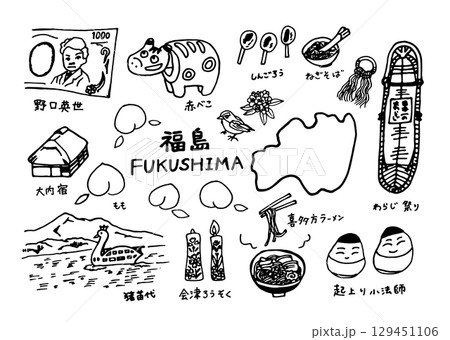 1000
野口英世
赤べこ
しんごろう
ねぎそば
わらじ祭り
大内宿
もも
福島
FUKUSHIMA
喜多方ラーメン
猪苗代
会津ろうそく
起上り小法師
129451106